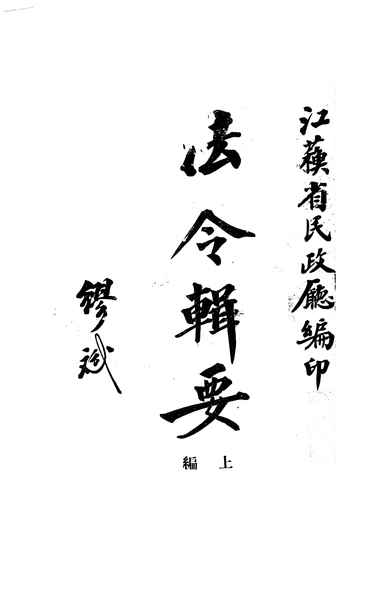 江蘇省民政廳編印
法令輯要
上編
繆斌